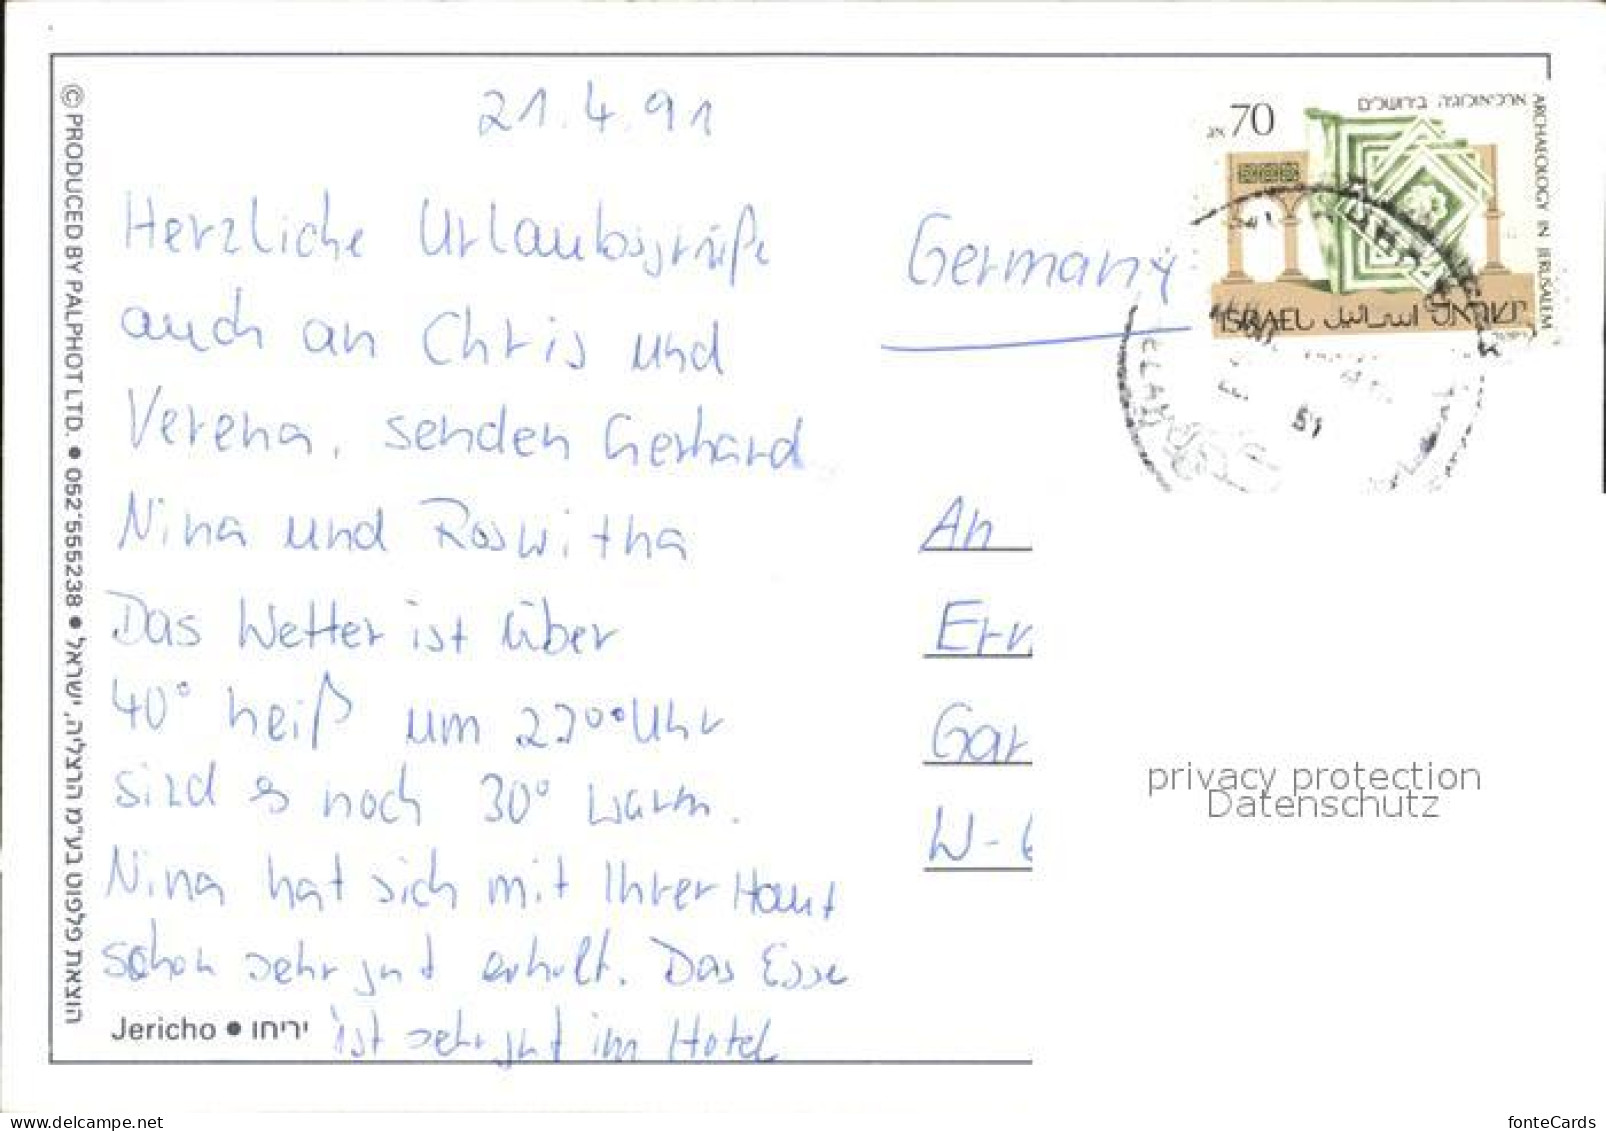 21.4.91
Herzliche Urlaubsgrüße
auch an Chris und
Verena, senden Gerhard
Nina und Roswitha
Das Wetter ist über
40° heiß um 22°° Uhr
sind es noch 30° warm.
Nina hat sich mit Ihrer Haut
schon sehr gut erholt. Das Esse
ist sehr gut im Hotel
Jericho • יריחו
© PRODUCED BY PALPHOT LTD. • 052-555238 • הוצאת פלפוט בע"מ הרצליה, ישראל
ארכיאולוגיה בירושלים
70 אג
ARCHAEOLOGY IN JERUSALEM
ISRAEL اسرائيل ישראל
Germany
An
Err
Gar
W-
privacy protection
Datenschutz
www.delcampe.net
fonteCards